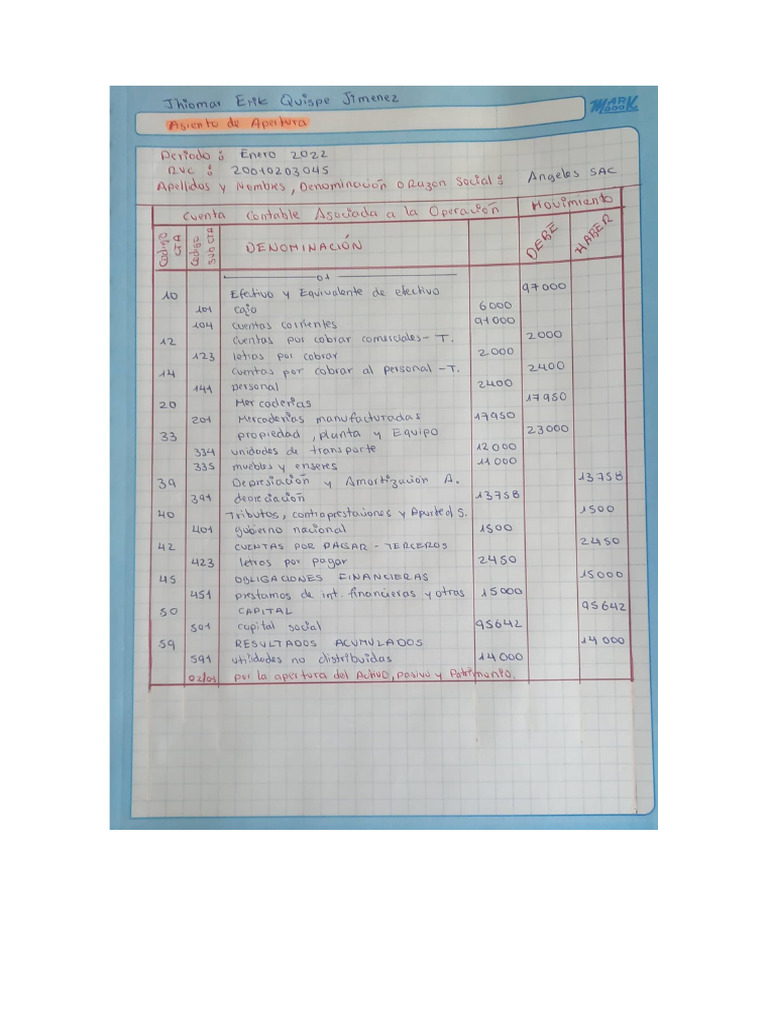 Jhiomar Erik Quispe Jimenez
MARK
Asiento de Apertura
Periodo : Enero 2022
RUC : 20010203045
Apellidos y Nombres, Denominación o Razon Social : Angeles SAC
Cuenta Contable Asociada a la Operación Movimiento
Codigo CTA Codigo SUB CTA DENOMINACIÓN DEBE HABER
01
10 Efativo y Equivalente de efectivo 97000
101 caja 6000
104 cuentas corrientes 91000
12 cuentas por cobrar comerciales - T. 2000
123 letras por cobrar 2.000
14 cuentas por cobrar al personal - T. 2400
141 personal 2400
20 Mercaderias 17950
201 Mercaderias manufacturadas 17950
33 propiedad, planta y Equipo 23000
334 unidades de transporte 12000
335 muebles y enseres 11000
39 Depresiación y Amortización A. 13758
391 depreciación 13758
40 Tributos, contraprestaciones y Aporte al S. 1500
401 gobierno nacional 1500
42 CUENTAS POR PAGAR - TERCEROS 2450
423 letras por pagar 2450
45 OBLIGACIONES FINANCIERAS 15000
451 prestamos de int. financieras y otras 15000
50 CAPITAL 95642
501 capital social 95642
59 RESULTADOS ACUMULADOS 14000
591 utilidades no distribuidas 14000
02/01 por la apertura del Activo, pasivo y Patrimonio.